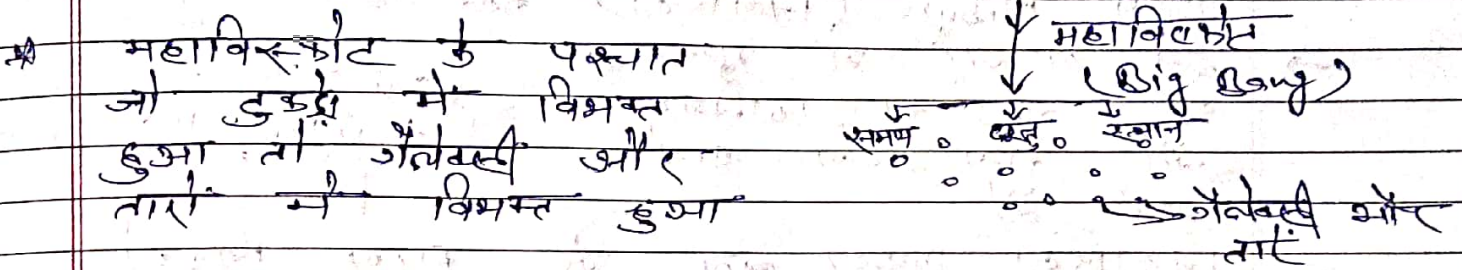 महाविस्फोट के पश्चात
जो टुकड़े में विभक्त
हुआ तो गैलेक्सी और
तारों में विभक्त हुआ
महाविस्फोट
(Big Bang)
समय स्थान
गैलेक्सी और
तारें